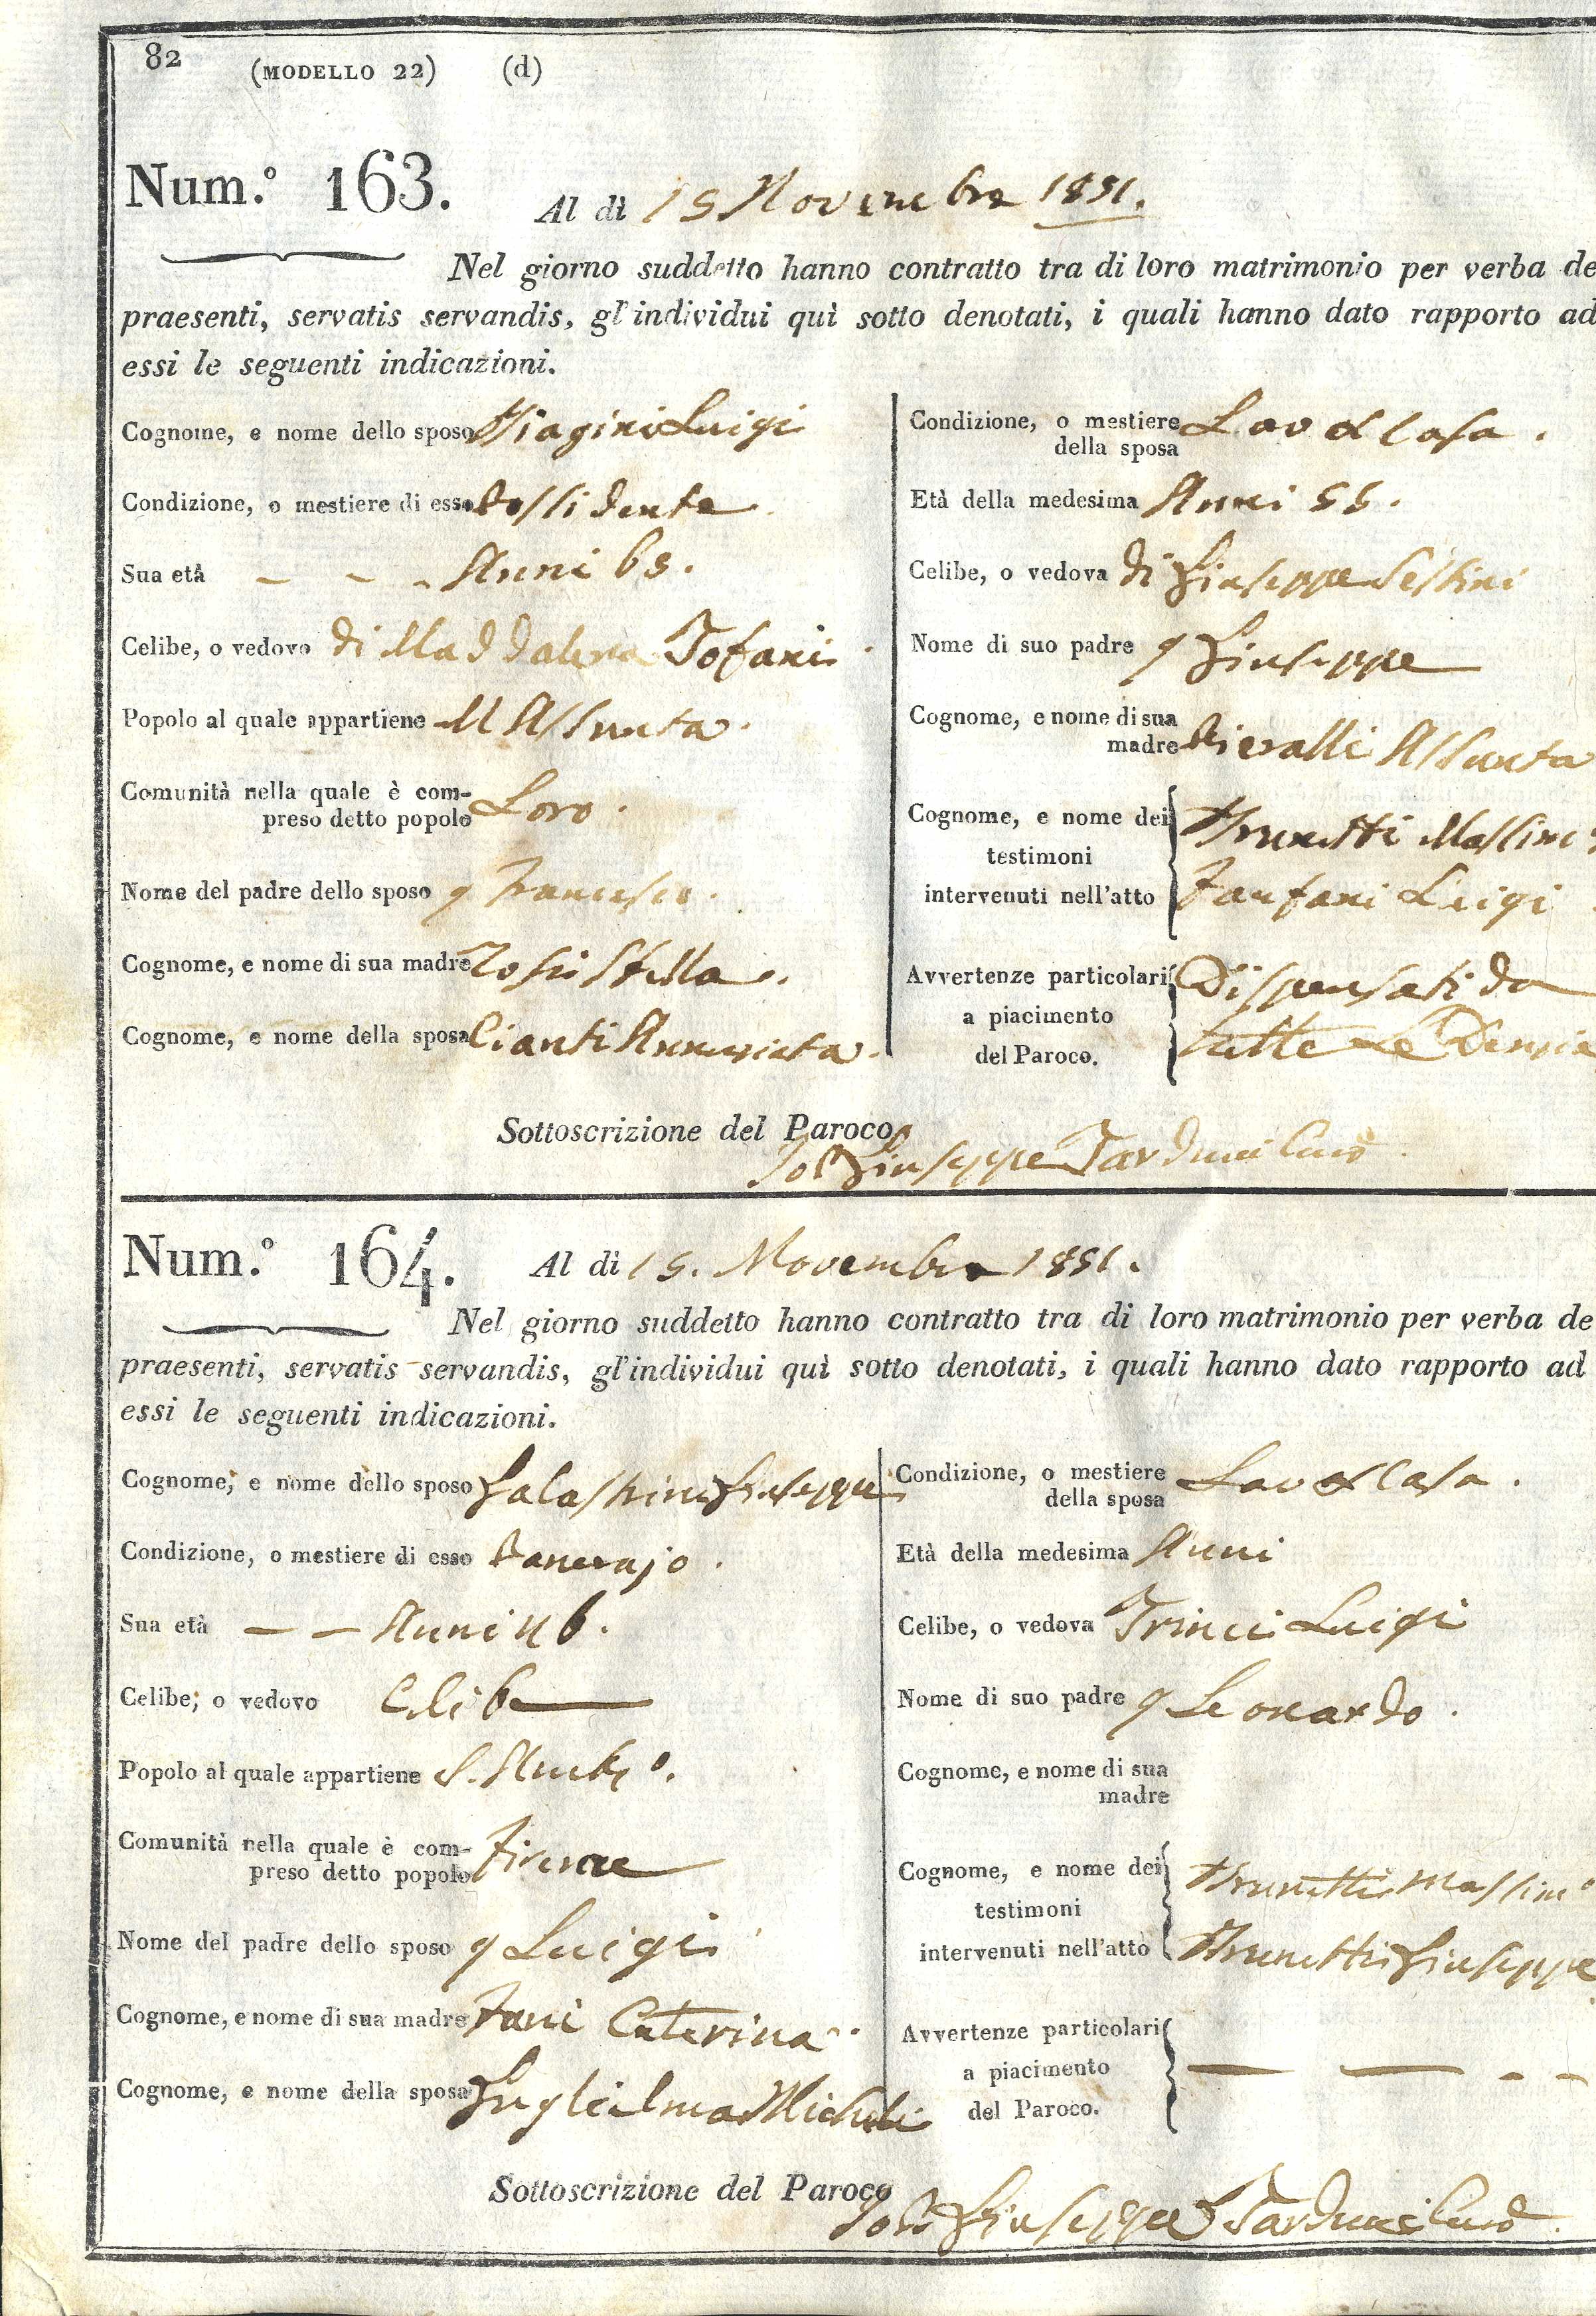 82 (MODELLO 22) (d)
Num.º 163. Al dì 15 Novembre 1851.
Nel giorno suddetto hanno contratto tra di loro matrimonio per verba de
praesenti, servatis servandis, gl'individui quì sotto denotati, i quali hanno dato rapporto ad
essi le seguenti indicazioni.
Cognome, e nome dello sposo Biagini Luigi
Condizione, o mestiere di esso Possidente
Sua età - - - Anni 65.
Celibe, o vedovo di Maddalena Tofani
Popolo al quale appartiene M Assunta.
Comunità nella quale è com-
preso detto popolo Loro.
Nome del padre dello sposo q Francesco.
Cognome, e nome di sua madre Stella.
Cognome, e nome della sposa Cianti Annunziata.
Condizione, o mestiere Lav a Casa.
della sposa
Età della medesima Anni 55.
Celibe, o vedova di Giuseppe Sestini
Nome di suo padre q Giuseppe
Cognome, e nome di sua
madre Pieralli Assunta
Cognome, e nome dei Brunetti Massimo
testimoni
intervenuti nell'atto Fanfani Luigi
Avvertenze particolari Dispensati da
a piacimento tutte le
del Paroco.
Sottoscrizione del Paroco
Giuseppe Tarducci Curº
Num.º 164. Al dì 15. Novembre 1851.
Nel giorno suddetto hanno contratto tra di loro matrimonio per verba de
praesenti, servatis servandis, gl'individui quì sotto denotati, i quali hanno dato rapporto ad
essi le seguenti indicazioni.
Cognome, e nome dello sposo Galastrini Giuseppe
Condizione, o mestiere di esso Panerajo.
Sua età — — Anni 46.
Celibe, o vedovo Celibe
Popolo al quale appartiene S.
Comunità nella quale è com-
preso detto popolo Firenze
Nome del padre dello sposo q Luigi
Cognome, e nome di sua madre Fani Caterina.
Cognome, e nome della sposa Guglielma Micheli
Condizione, o mestiere Lav a Casa.
della sposa
Età della medesima Anni
Celibe, o vedova Trinci Luigi
Nome di suo padre q Leonardo.
Cognome, e nome di sua
madre
Cognome, e nome dei Brunetti Massimº
testimoni
intervenuti nell'atto Brunetti Giuseppe
Avvertenze particolari
a piacimento — — - -
del Paroco.
Sottoscrizione del Paroco
Giuseppe Tarducci Curº